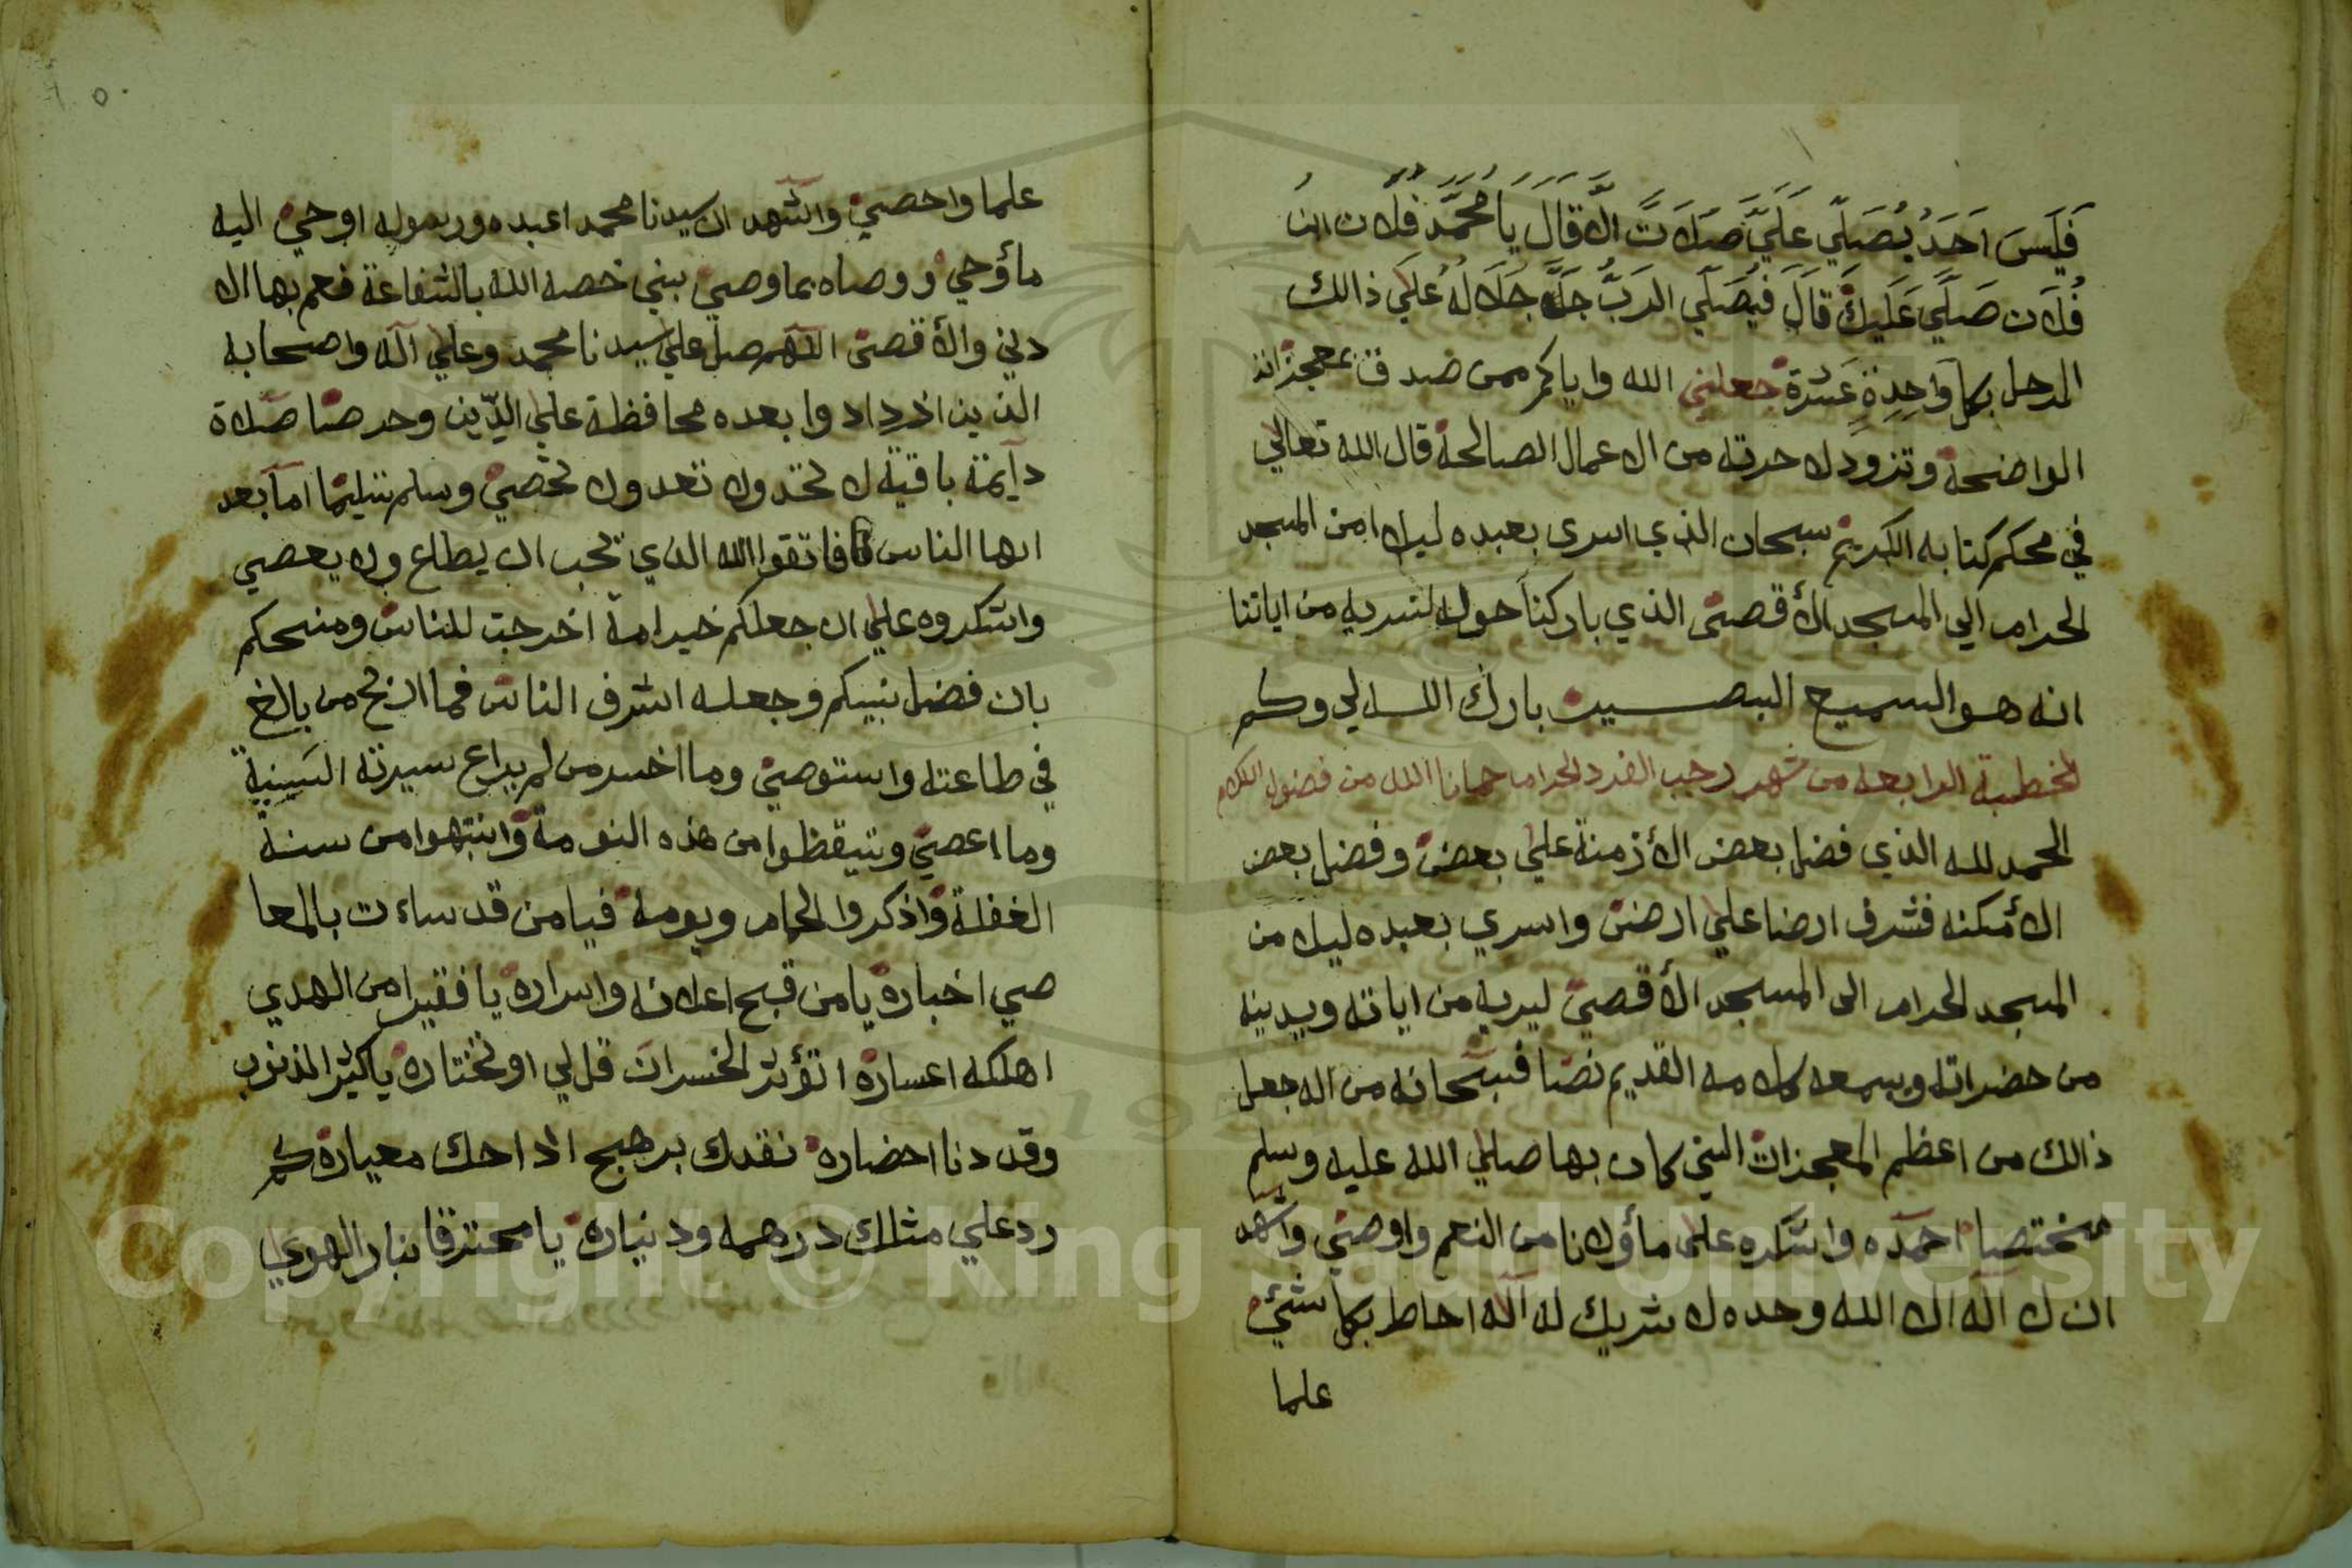 فَلَيسَ اَحَدُ يُصَلّي عَلَيَّ صَلَاتً الّا قَالَ يَا مُحَمَّد فُلان ابن
فُلَان صَلَّي عَلَيكَ قَالَ فَيُصَلّي الرَبُّ جَلَّ جَلَالُهُ عَلَي ذالك
الرجل بكل وَاحِدِةٍ عَشرة جعلني الله واياكم ممن صدق بمعجزاته
الواضحة وتزود لاخرته من الاعمال الصالحة قال الله تعالي
في محكم كتابه الكريم سبحان الذي اسرى بعبده ليلا من المسجد
الحرام الي المسجد الأقصى الذي باركنا حوله لنريه من اياتنا
انه هو السميع البصير بارك الله لي ولكم
الخطبة الرابعه من شهر رجب الفرد الحرام حمانا الله من فضول الكلام
الحمد لله الذي فضل بعض الأزمنة علي بعض وفضل بعض
الأمكنه فشرف ارضا علي ارض واسري بعبده ليلا من
المسجد الحرام الى المسجد الأقصي ليريه من اياته ويدينه
من حضراته ويسمعه كلامه القديم نصا فسبحانه من اله جعل
ذالك من اعظم المعجزات التي كان بها صلي الله عليه وسلم
مختصا احمده واشكره على ما أولانا من النعم واوصي واشهد
ان لا اله الا الله وحده لا شريك له اله احاط بكل شئ
علما
علما واحصي واشهد ان سيدنا محمد اعبده ورسوله اوحي اليه
ما أوحي ووصاه بما وصي بني خصه الله بالشفاعة فعم بها الا
دني والأقصى اللهم صل علي سيدنا محمد وعلي آله واصحابه
الذين ازدادوا بعده محافظة علي الدّين وحرصا صلاة
دآيمة باقية لا تحد ولا تعد ولا تحصي وسلم تسليما اما بعد
ايها الناس فاتقوا الله الذي يجب ان يطاع ولا يعصي
واشكروه علي ان جعلكم خير امة اخرجت للناس ومنحكم
بان فضل نبيكم وجعله اشرف الناس فما اربح من بالغ
في طاعته واستوصي وما اخسر من لم يراع سيرته السنية
وما اعصي وتيقظوا من هذه النومة وانتبهوا من سنة
الغفلة واذكروا الحمام ويومه فيا من قد ساءت بالمعا
صي اخباره يا من قبح اعلانه واسراره يا فقيرا من الهدي
اهلكه اعساره اتؤثر الخسران قل لي او تختاره يا كثير الذنوب
وقد دنا احضاره نقدك بهرج اذا حك معياره كم
رد علي مثلك درهمه وديناره يا محترقا بنار الهوي
Copyright © King Saud University